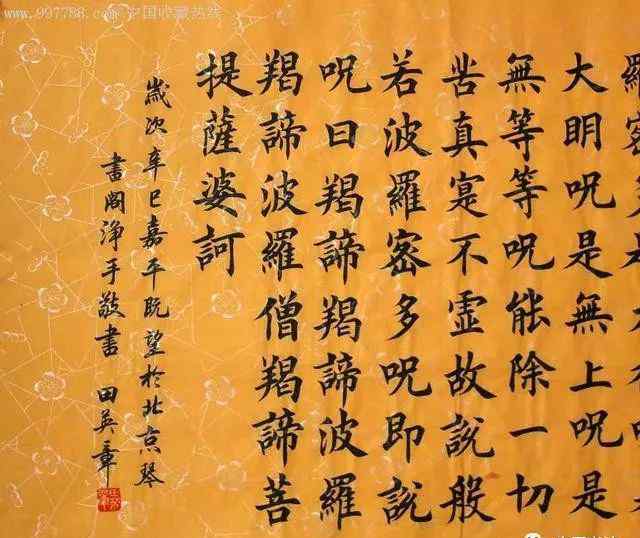 www.997788.com 中国收藏热线
羅密
大明呪是無上呪是
無等等呪能除一切
苦真寔不虛故說般
若波羅密多呪即說
呪曰羯諦羯諦波羅
羯諦波羅僧羯諦菩
提薩婆訶
歲次辛巳嘉平既望於北京琴
書閣淨手敬書 田英章